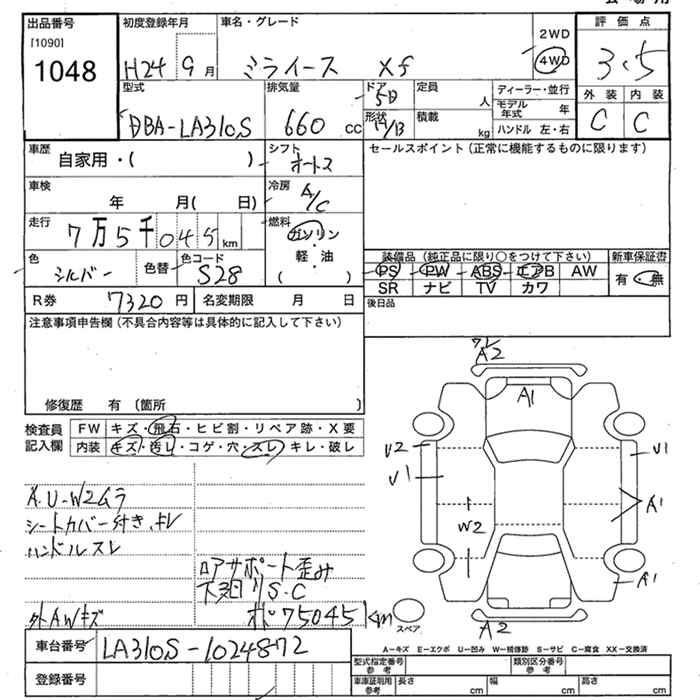 出品番号
[1090]
1048
初度登録年月
H24 9月
車名・グレード
ミライース Xf
2WD
4WD
評価点
3.5
型式
DBA-LA310S
排気量
660 cc
ドア
5D
形状
定員
人
積載
kg
ディーラー・並行
モデル年式 年
ハンドル 左・右
外装 内装
C C
車歴
自家用・( )
シフト
オートス
セールスポイント(正常に機能するものに限ります)
車検
年 月( 日)
冷房
A/C
走行
7万5千045km
燃料
ガソリン
軽・油
( )
色
シルバー
色替
色コード
S28
装備品(純正品に限り○をつけて下さい)
PS PW ABS エアB AW
SR ナビ TV カワ
新車保証書
有・無
R券 7320円
名変期限 月 日
後日品
注意事項申告欄(不具合内容等は具体的に記入して下さい)
修復歴 有 (箇所 )
検査員記入欄
FW キズ・飛石・ヒビ割・リペア跡・X要
内装 キズ・汚し・コゲ・穴・スレ・キレ・破レ
A.U-W2ムラ
シートカバー付き、キレ
ハンドルスレ
ロアサポート歪み
下廻りS.C
外AWキズ
ポ75045km
A2
A1
U2
U1
U1
A1
W2
A1
A2
スペア
A−キズ E−エクボ U−凹み W−補修跡 S−サビ C−腐食 XX−交換済
車台番号
LA310S-1024872
登録番号
型式指定番号 参考
類別区分番号 参考
車庫証明用 参考
長さ cm
幅 cm
高さ cm